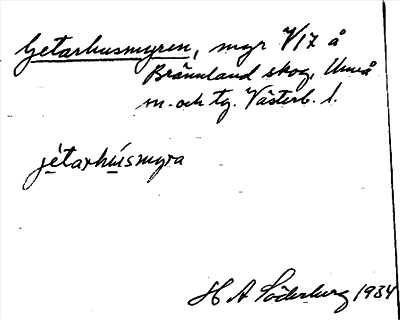 Getarhusmyren, myr V/17 å
Brännland skog, Umeå
sn. och tg. Västerb. l.
jétarhúsmyra
H A Söderberg 1934